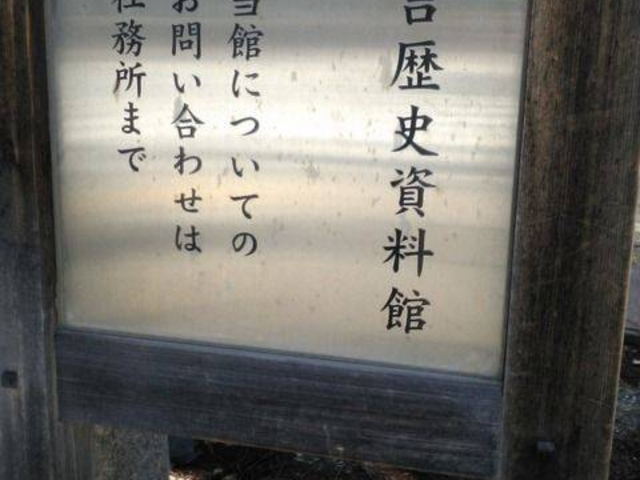 歴史資料館
当館についての
お問い合わせは
社務所まで